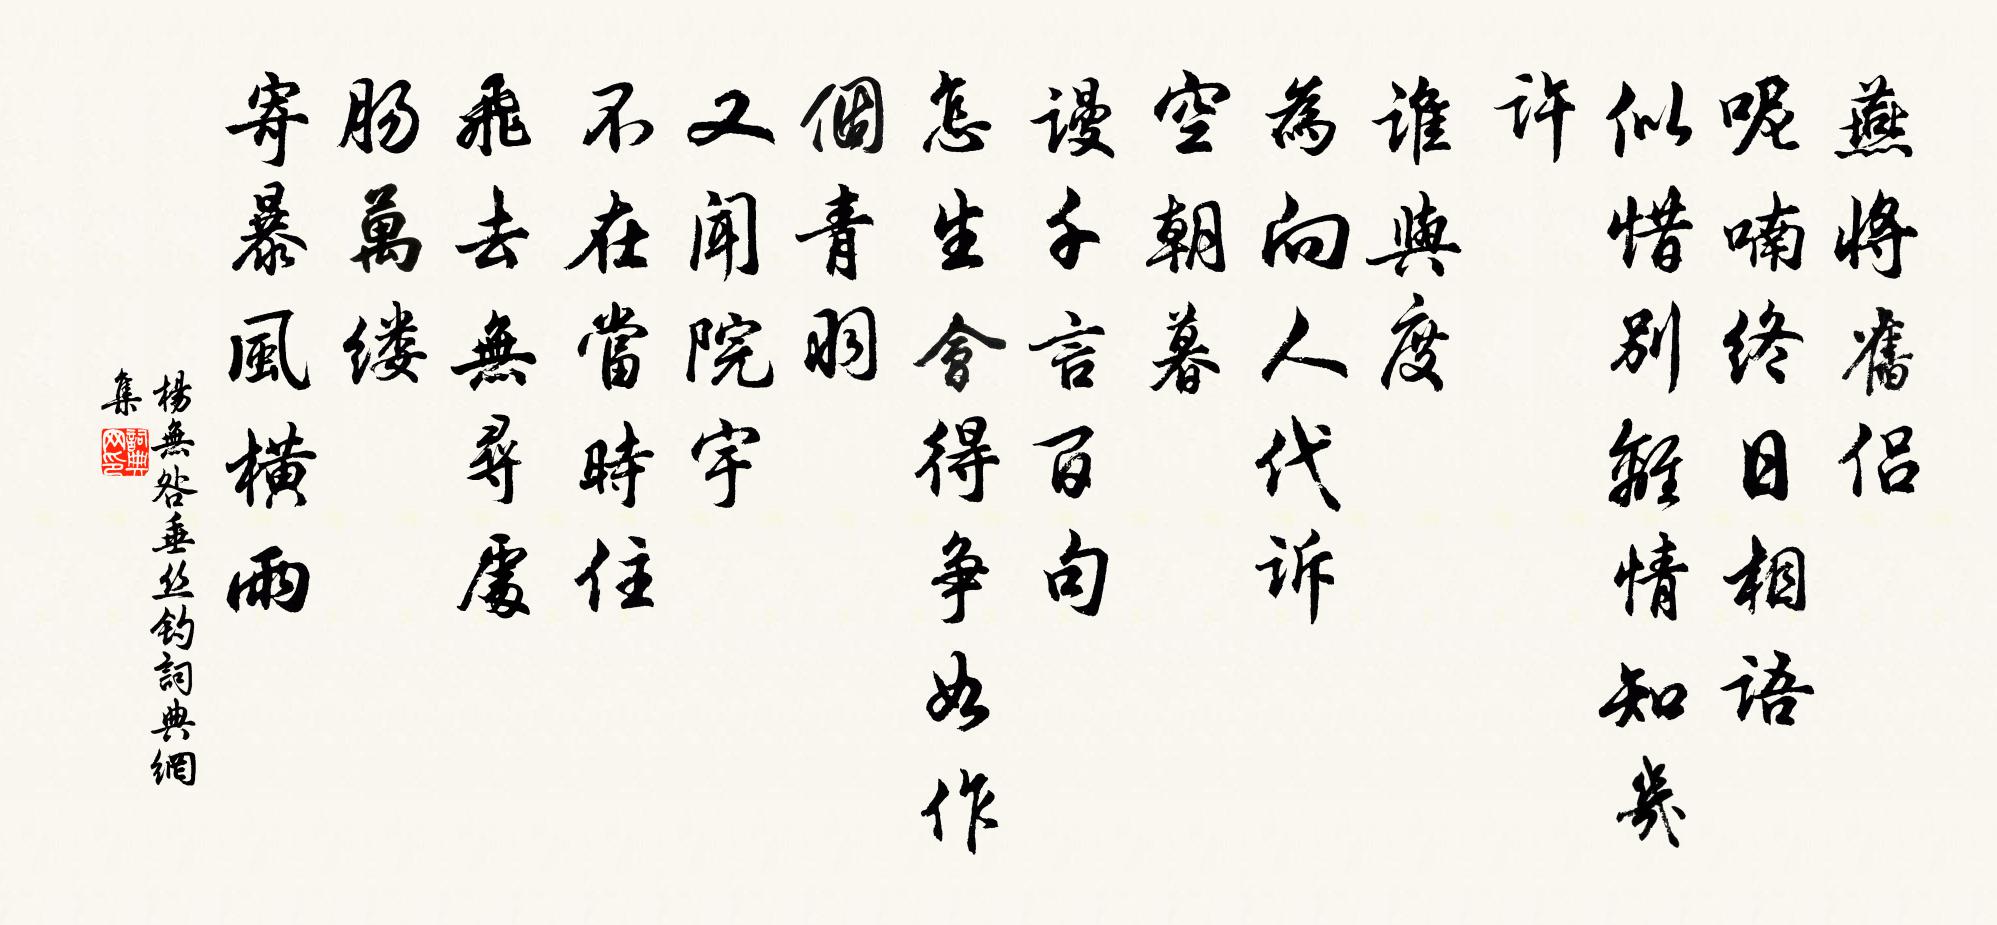 燕將舊侣
呢喃终日相語
似惜别離情知幾
許
誰與度
為向人代诉
空朝暮
谩千言百句
怎生會得争如作
個青羽
又聞院宇
不在當時住
飛去無尋處
肠萬缕
寄暴風橫雨
楊無咎垂丝钓詞典網
集
詞典网印